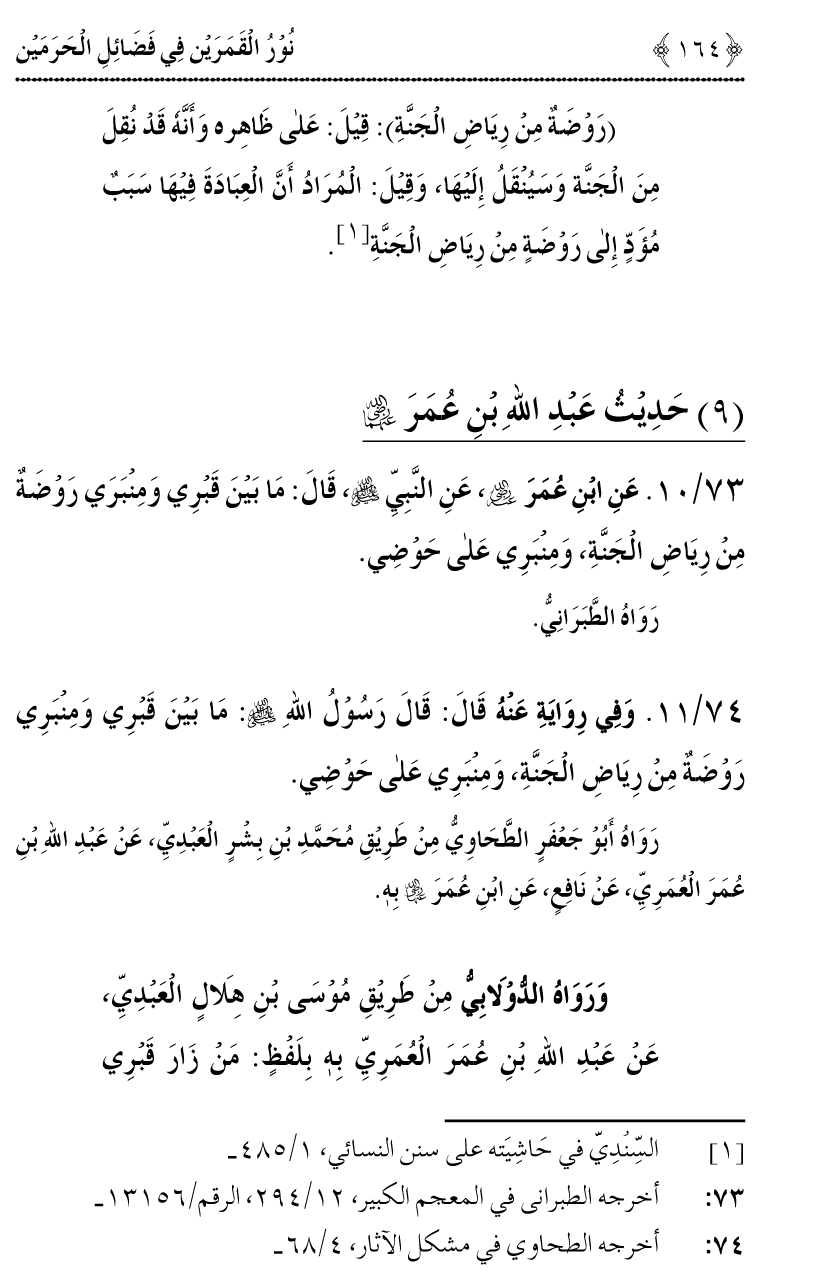 ﴿١٦٤﴾ نُوْرُ الْقَمَرَيْنِ فِي فَضَائِلِ الْحَرَمَيْنِ
(رَوْضَةٌ مِنْ رِيَاضِ الْجَنَّةِ): قِيْلَ: عَلٰى ظَاهِرِه وَأَنَّهٗ قَدْ نُقِلَ
مِنَ الْجَنَّة وَسَيُنْقَلُ إِلَيْهَا، وَقِيْلَ: الْمُرَادُ أَنَّ الْعِبَادَةَ فِيْهَا سَبَبٌ
مُؤَدٍّ إِلٰى رَوْضَةٍ مِنْ رِيَاضِ الْجَنَّةِ[١].
(٩) حَدِيْثُ عَبْدِ اللهِ بْنِ عُمَرَ رضي الله عنهما
١٠/٧٣. عَنِ ابْنِ عُمَرَ رضي الله عنهما، عَنِ النَّبِيِّ ﷺ، قَالَ: مَا بَيْنَ قَبْرِي وَمِنْبَرَي رَوْضَةٌ
مِنْ رِيَاضِ الْجَنَّةِ، وَمِنْبَرِي عَلٰى حَوْضِي.
رَوَاهُ الطَّبَرَانِيُّ.
١١/٧٤. وَفِي رِوَايَةِ عَنْهُ قَالَ: قَالَ رَسُوْلُ اللهِ ﷺ: مَا بَيْنَ قَبْرِي وَمِنْبَرِي
رَوْضَةٌ مِنْ رِيَاضِ الْجَنَّةِ، وَمِنْبَرِي عَلٰى حَوْضِي.
رَوَاهُ أَبُوْ جَعْفَرٍ الطَّحَاوِيُّ مِنْ طَرِيْقِ مُحَمَّدِ بْنِ بِشْرٍ الْعَبْدِيِّ، عَنْ عَبْدِ اللهِ بْنِ
عُمَرَ الْعُمَرِيِّ، عَنْ نَافِعٍ، عَنِ ابْنِ عُمَرَ رضي الله عنهما بِهٖ.
وَرَوَاهُ الدُّوْلَابِيُّ مِنْ طَرِيْقِ مُوْسَى بْنِ هِلَالٍ الْعَبْدِيِّ،
عَنْ عَبْدِ اللهِ بْنِ عُمَرَ الْعُمَرِيِّ بِهٖ بِلَفْظٍ: مَنْ زَارَ قَبْرِي
[١] السِّنْدِيّ في حَاشِيَته على سنن النسائي، ٤٨٥/١ـ
٧٣: أخرجه الطبرانى في المعجم الكبير، ٢٩٤/١٢، الرقم/١٣١٥٦ـ
٧٤: أخرجه الطحاوي في مشكل الآثار، ٦٨/٤ـ